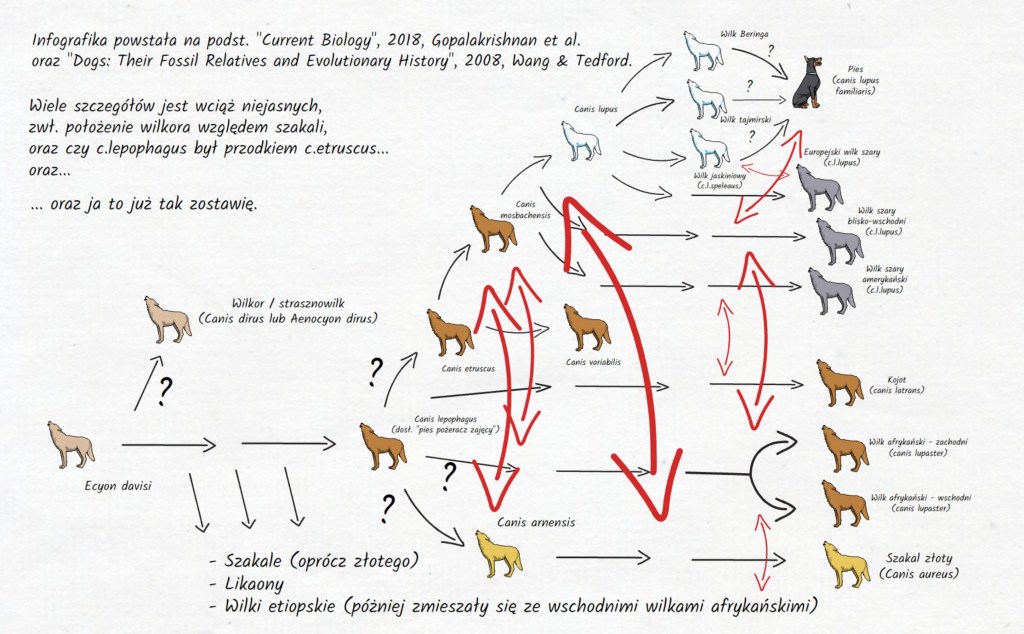 Infografika powstała na podst. "Current Biology", 2018, Gopalakrishnan et al.
oraz "Dogs: Their Fossil Relatives and Evolutionary History", 2008, Wang & Tedford.
Wiele szczegółów jest wciąż niejasnych,
zwł. położenie wilkora względem szakali,
oraz czy c.lepophagus był przodkiem c.etruscus...
oraz...
... oraz ja to już tak zostawię.
Wilk Beringa
?
Pies
(canis lupus
familiaris)
Canis lupus
?
Wilk tajmirski
?
Europejski wilk szary
(c.l.lupus)
Wilk jaskiniowy
(c.l.speleaus)
Canis
mosbachensis
Wilk szary
blisko-wschodni
(c.l.lupus)
Wilk szary
amerykański
(c.l.lupus)
Wilkor / strasznowilk
(Canis dirus lub Aenocyon dirus)
?
?
Canis etruscus
Canis variabilis
Kojot
(canis latrans)
Canis lepophagus
(dosł. "pies pożeracz zajęcy")
Wilk afrykański - zachodni
(canis lupaster)
Ecyon davisi
?
?
Wilk afrykański - wschodni
(canis lupaster)
Canis arnensis
Szakal złoty
(Canis aureus)
- Szakale (oprócz złotego)
- Likaony
- Wilki etiopskie (później zmieszały się ze wschodnimi wilkami afrykańskimi)